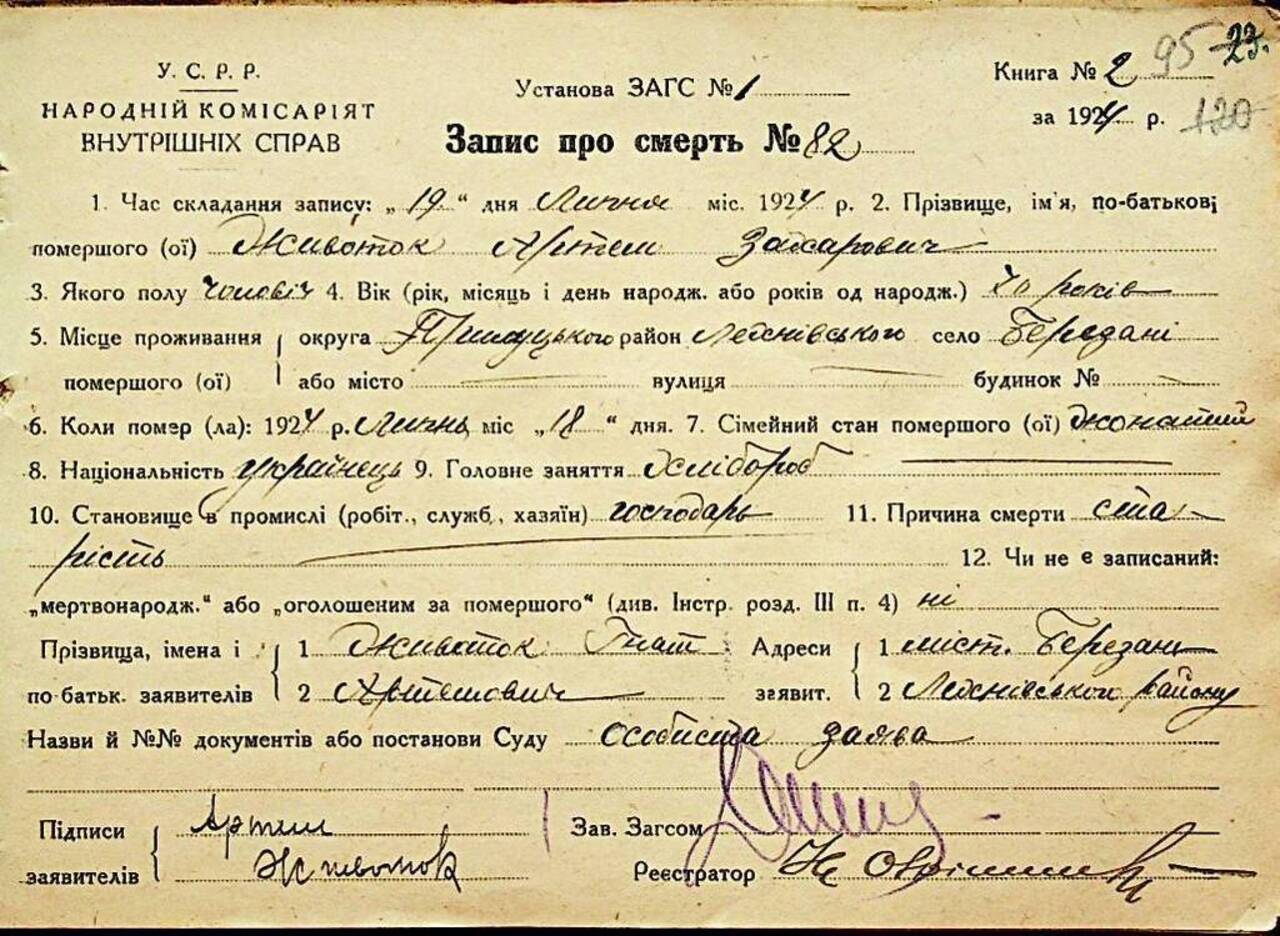 У. С. Р. Р.
НАРОДНІЙ КОМІСАРІЯТ
ВНУТРІШНІХ СПРАВ
Установа ЗАГС № 1
Запис про смерть № 82
Книга № 2 95 23.
за 1924 р. 120
1. Час складання запису: „19“ дня Липня міс. 1924 р. 2. Прізвище, ім'я, по-батькові
помершого (ої) Животок Артем Захарович
3. Якого полу чоловіч 4. Вік (рік, місяць і день народж. або років од народж.) 70 років
5. Місце проживання округа Прилуцького район село Березані
помершого (ої) або місто вулиця будинок №
6. Коли помер (ла): 1924 р. Липня міс „18“ дня. 7. Сімейний стан помершого (ої) жонатий
8. Національність українець 9. Головне заняття Хлібороб
10. Становище в промислі (робіт., служб., хазяїн) господарь 11. Причина смерти ста
рість 12. Чи не є записаний:
„мертвонародж.“ або „оголошеним за помершого“ (див. Інстр. розд. III п. 4) ні
Прізвища, імена і 1 Животок Гнат Адреси 1 міст. Березань
по батьк. заявителів 2 Артемович заявит. 2 району
Назви й №№ документів або постанови Суду особиста заява
Підписи Артем Зав. Загсом
заявителів Животок Реєстратор